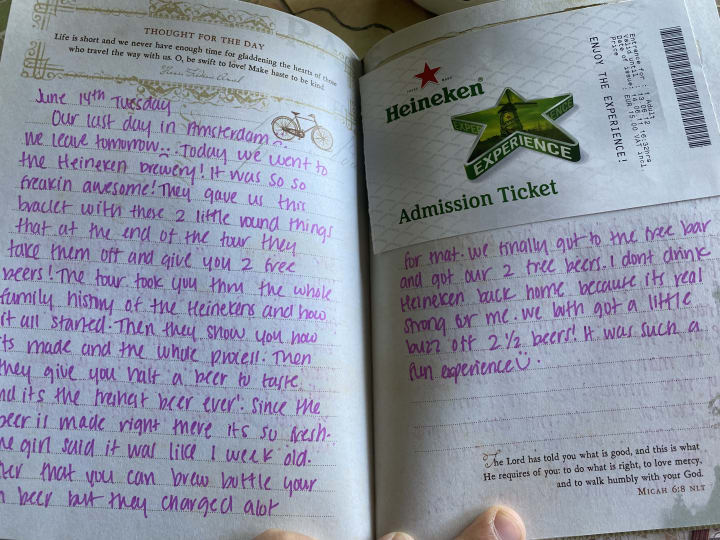 THOUGHT FOR THE DAY
Life is short and we never have enough time for gladdening the hearts of those
who travel the way with us. O, be swift to love! Make haste to be kind.
June 14th Tuesday
Our last day in Amsterdam
we leave tomorrow... Today we went to
the Heineken brewery! It was so so
freakin awesome! They gave us this
braclet with these 2 little round things
that at the end of the tour they
take them off and give you 2 free
beers! The tour took you thru the whole
family history of the Heinekens and how
it all started. Then they show you how
its made and the whole process. Then
they give you half a beer to taste
nd its the freshest beer ever! Since the
beer is made right there its so fresh.
he girl said it was like 1 week old.
ter that you can brew bottle your
n beer but they charged alot
Heineken®
EXPERIENCE
EXPERIENCE
Admission Ticket
ENJOY THE EXPERIENCE!
Entrance for : 1 Adult
Valid until :
Date of issue:
Price : EUR 15.00 VAT incl
for that. we finally got to the free bar
and got our 2 free beers. I dont drink
Heineken back home because its real
strong for me. we both got a little
buzz off 2 1/2 beers! It was such a
fun experience☺.
The Lord has told you what is good, and this is what
He requires of you: to do what is right, to love mercy,
and to walk humbly with your God.
MICAH 6:8 NLT